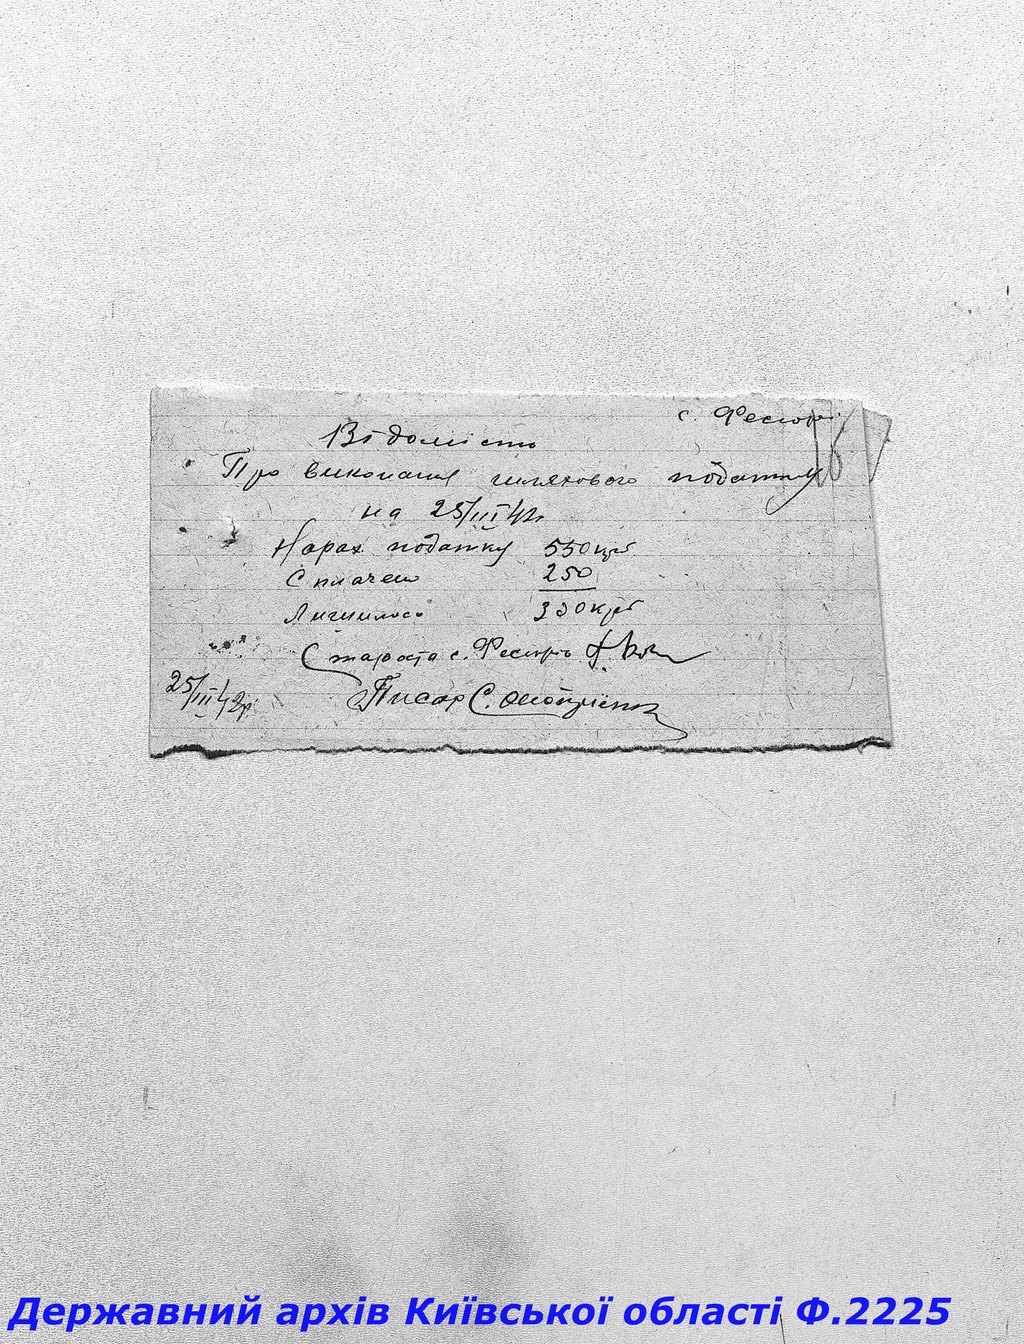 с. Фесюри
16
Відомість
Про виконання шляхового податку
на 25/III 42р
Нарах податку 550 крб
Сплачено 250
Лишилось 300 крб
Староста с. Фесюрів
Писар С.
25/III 42р.
Державний архів Київської області Ф.2225